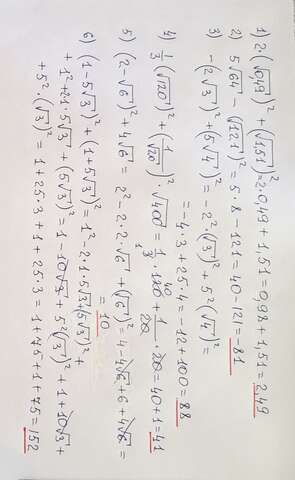 1) 2·(√0,49)² + (√1,51)² = 2·0,49 + 1,51 = 0,98 + 1,51 = 2,49
2) 5√64 − (√121)² = 5·8 − 121 = 40 − 121 = −81
3) −(2√3)² + (5√4)² = −2²·(√3)² + 5²·(√4)² =
= −4·3 + 25·4 = −12 + 100 = 88
4) 1/3(√120)² + (1/√20)²·√400 = 1/3·120 + 1/20·20 = 40 + 1 = 41
5) (2−√6)² + 4√6 = 2² − 2·2·√6 + (√6)² = 4 − 4√6 + 6 + 4√6 =
= 10
6) (1−5√3)² + (1+5√3)² = 1² − 2·1·5√3 + (5√3)² +
+ 1² + 2·1·5√3 + (5√3)² = 1 − 10√3 + 5²(√3)² + 1 + 10√3 +
+ 5²·(√3)² = 1 + 25·3 + 1 + 25·3 = 1 + 75 + 1 + 75 = 152